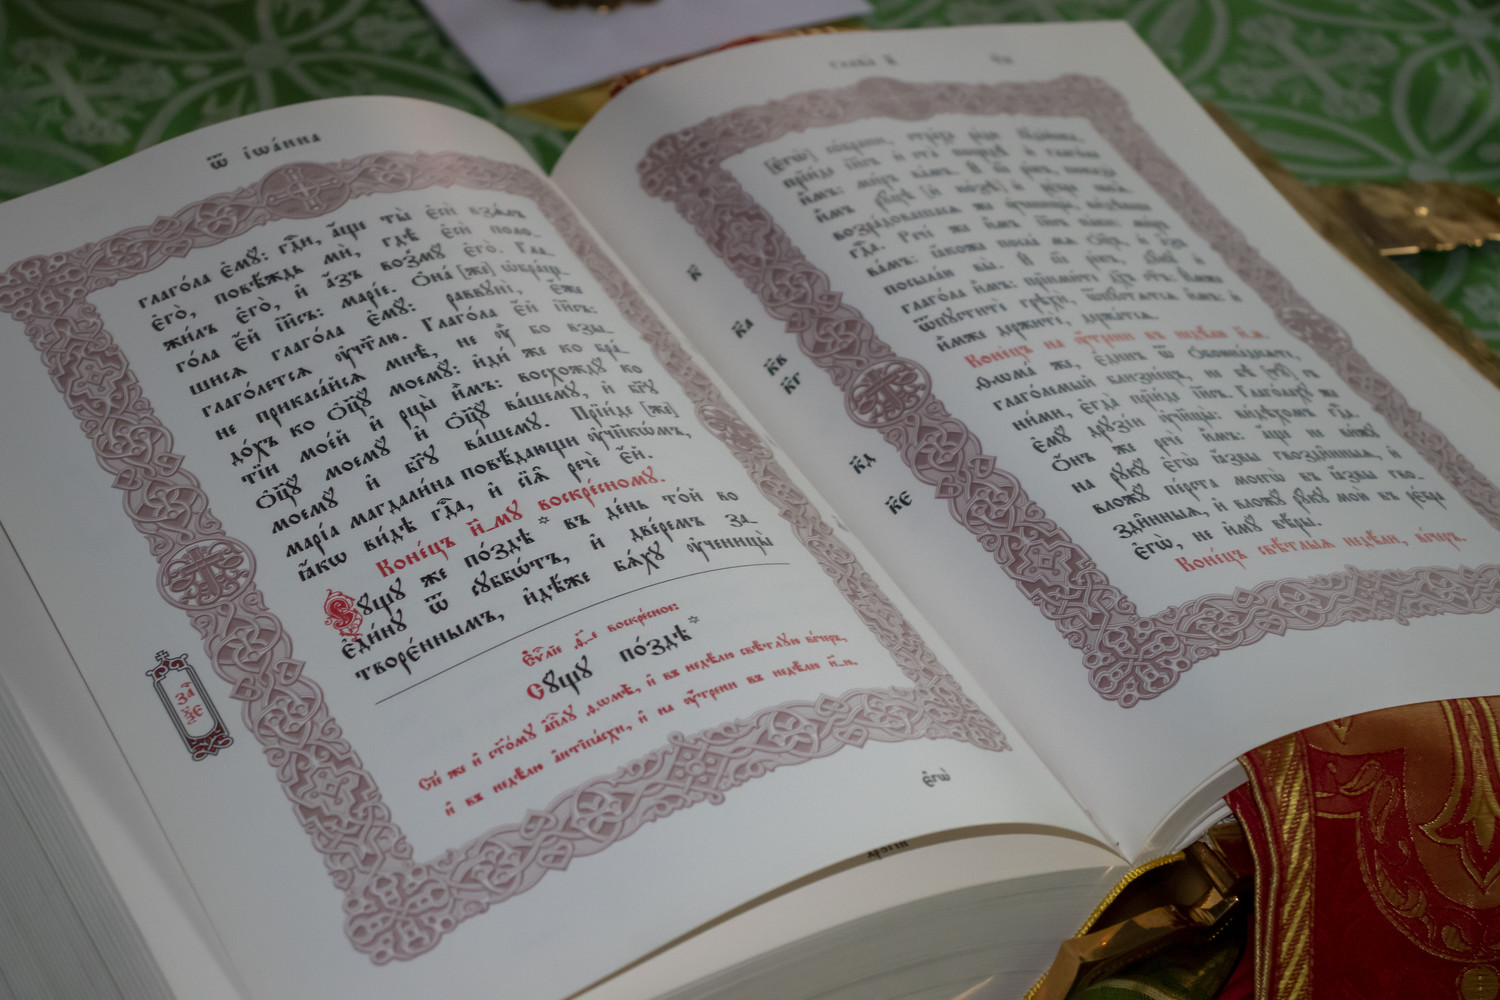 ѿ іѡа́нна
глаго́ла є҆мꙋ̀: гдⷭ҇и, а҆́ще ты̀ є҆сѝ взѧ́лъ
є҆го̀, повѣ́ждь мѝ, гдѣ̀ є҆сѝ поло-
жи́лъ є҆го̀, и҆ а҆́зъ возмꙋ̀ є҆го̀. Гла-
го́ла є҆́й і҆и҃съ: марі́е. Ѻ҆на́ [же] ѡ҆бра́щ-
шисѧ глаго́ла є҆мꙋ̀: раввꙋні̀, є҆́же
глаго́летсѧ ᲂу҆чт҃лю. Глаго́ла є҆́й і҆и҃съ:
не прикаса́йсѧ мнѣ̀, не ᲂу҆̀ бо взы-
до́хъ ко ѻ҆ц҃ꙋ̀ моемꙋ̀: и҆ди́ же ко бра́-
тїи мое́й и҆ рцы̀ и҆̀мъ: восхождꙋ̀ ко
ѻ҆ц҃ꙋ̀ моемꙋ̀ и҆ ѻ҆ц҃ꙋ̀ ва́шемꙋ, и҆ бг҃ꙋ
моемꙋ̀ и҆ бг҃ꙋ ва́шемꙋ. Прїи́де [же]
марі́а магдали́на повѣ́дающи ᲂу҆чн҃кѡ́мъ,
ꙗ҆́кѡ ви́дѣ гдⷭ҇а, и҆ сїѧ̑ речѐ є҆́й.
Коне́цъ и҃_мꙋ воскре́сномꙋ.
Сꙋ́щꙋ же по́здѣ * въ де́нь то́й во
є҆ди́нꙋ ѿ сꙋббѡ́тъ, и҆ две́ремъ за-
творє́ннымъ, и҆дѣ́же бѧ́хꙋ ᲂу҆ченицы̀
Є҆ѵⷢ҇лїе д҃_е воскре́сное:
Сꙋ́щꙋ по́здѣ *
Сїѐ же и҆ ст҃о́мꙋ а҆пⷭ҇лꙋ ѳѡмѣ̀, и҆ въ недѣ́лю свѣ́тлꙋю ве́чера,
и҆ въ недѣ́лю а҆нтїпа́схи, и҆ на ᲂу҆́трени въ недѣ́лю н҃-ю.
є҆гѡ̀
к҃
к҃а
к҃в
к҃г
к҃д
к҃є
[є҆гѡ̀]
прїи́де і҆и҃съ и҆ ста̀ посредѣ̀ и҆ глаго́ла
и҆̀мъ: ми́ръ ва́мъ.
возра́довашасѧ же ᲂу҆чн҃цы̀, ви́дѣвше
гдⷭ҇а. Рече́ же и҆̀мъ і҆и҃съ па́ки: ми́ръ
ва́мъ: ꙗ҆́коже посла́ мѧ ѻ҆ц҃ъ, и҆ а҆́зъ
посыла́ю вы̀.
глаго́ла и҆̀мъ: прїими́те дх҃ъ ст҃ъ. И҆̀мже
ѿпꙋститѐ грѣхѝ, ѿпꙋ́стѧтсѧ и҆̀мъ: и҆
и҆̀мже держитѐ, держа́тсѧ.
Коне́цъ на ᲂу҆́трени въ недѣ́лю н҃-ю.
Ѳѡма́ же, є҆ди́нъ ѿ ѻ҆боюна́десѧте,
глаго́лемый близне́цъ, не бѣ̀ [тꙋ̀] съ
ни́ми, є҆гда̀ прїи́де і҆и҃съ. Глаго́лахꙋ же
є҆мꙋ̀ дрꙋзі́и ᲂу҆чн҃цы̀: ви́дѣхомъ гдⷭ҇а.
Ѻ҆́нъ же речѐ и҆̀мъ: а҆́ще не ви́жꙋ
на рꙋкꙋ̀ є҆гѡ̀ ꙗ҆́звы гвозди̑нныѧ, и҆
вложꙋ̀ пе́рста моегѡ̀ въ ꙗ҆́звы гво-
зди̑нныѧ, и҆ вложꙋ̀ рꙋ́кꙋ мою̀ въ ре́бра
є҆гѡ̀, не и҆мꙋ̀ вѣ́ры.
Коне́цъ свѣ́тлыѧ недѣ́ли, ве́чера.